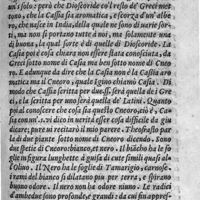 un's solo: però che Dioscoride co'l resto de' Greci met
topo, che la Cassia sia aromatica, e scorza d'un'albe
ro, che nasce in India, della quale ne sono di varie sorti,
ma non si portano tutte à noi, ma solamente una
di buona, la qual forte è di quelle di Dioscoride. La
Casia poi è cosa chiaro non essere stata conosciuta da
Greci sotto nome di Casia ma ben sotto nome di Cneo
ro. E adunque da dire che la Casia non è la Casia aro
matica ma el Cneoro, quale i Greci chiamò Casia. Di
modo che Cassia scritta per due.ss. serà quella de i Gre
ci, ma scritta per uno serà quella de' Latini. Quanto
poi al conoscere che cosa sia quello Cneoro, cioè,
Casia con un'.s. vi dico in verità esser cosa difficile da giu
dicare, pure vi reciterò il mio parere. Theofrasto par
la di due piante sotto nome di Cneoro dicendo. Sono
due spetie di Cneoro bianco, et nero. Il biācho ha le fo
glie in figura lunghette à guisa di cute simili quasi al
l'Olivo. Il Nero ha le foglie di Tamarigio, carnose.
i rami del bianco si dilatano più per terra, e spirano
buono odore. Il nero non ha odore niuno. Le radici
d'ambedue sono profonde e grandi: da cui